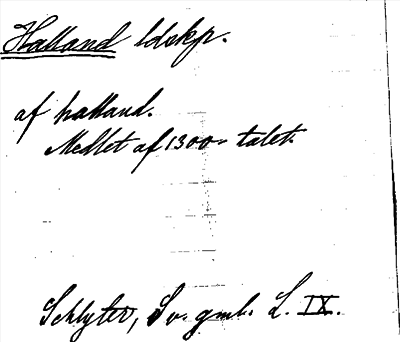 Halland ldskp.
af halland.
Medlet af 1300-talet.
Schlyter, Sv. gml. L. IX.